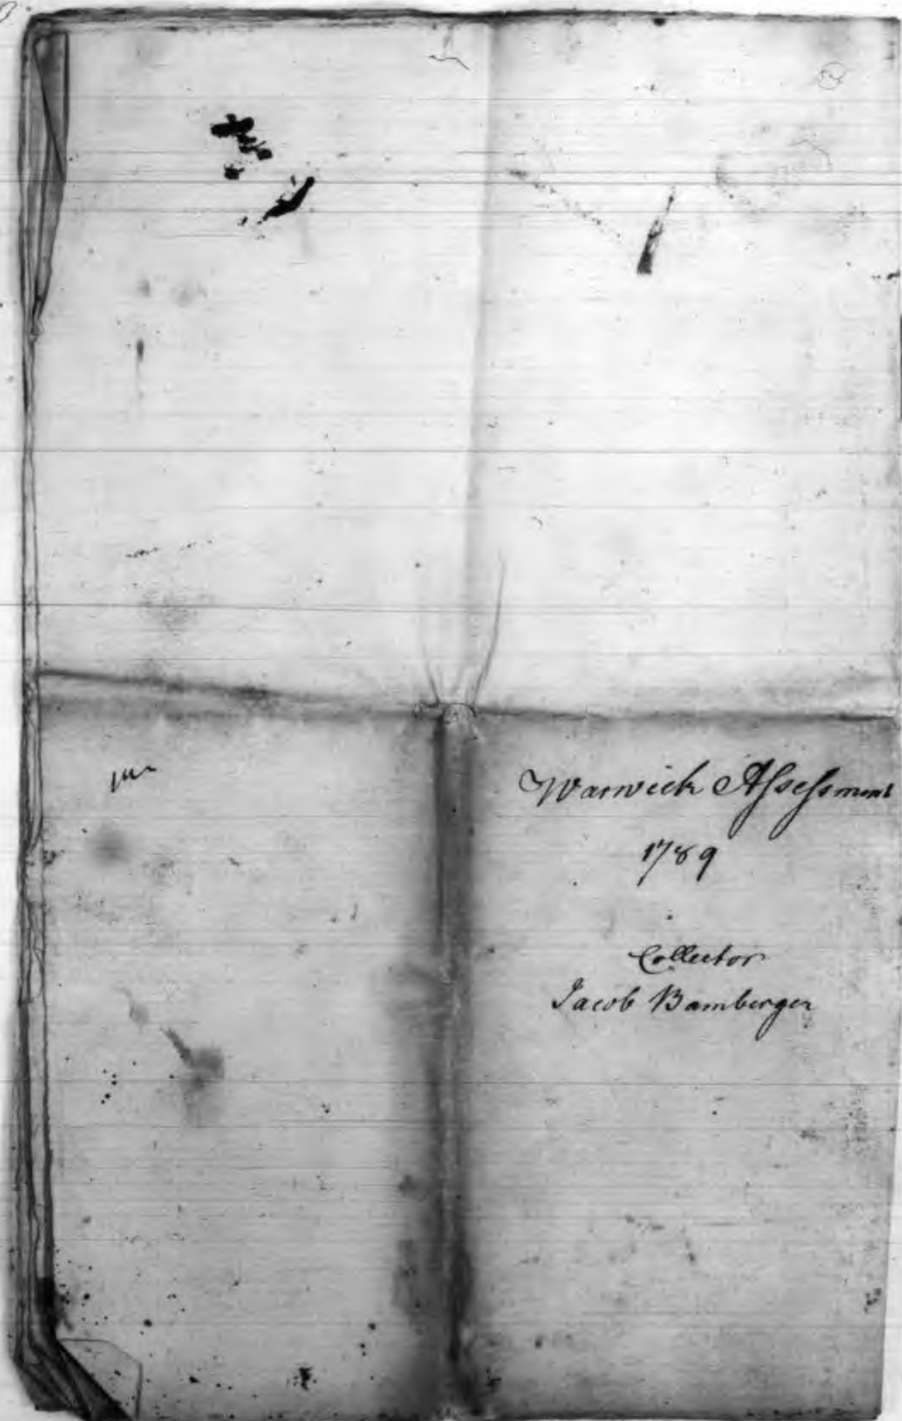 Warwick Assessment
1789
Collector
Jacob Bamberger